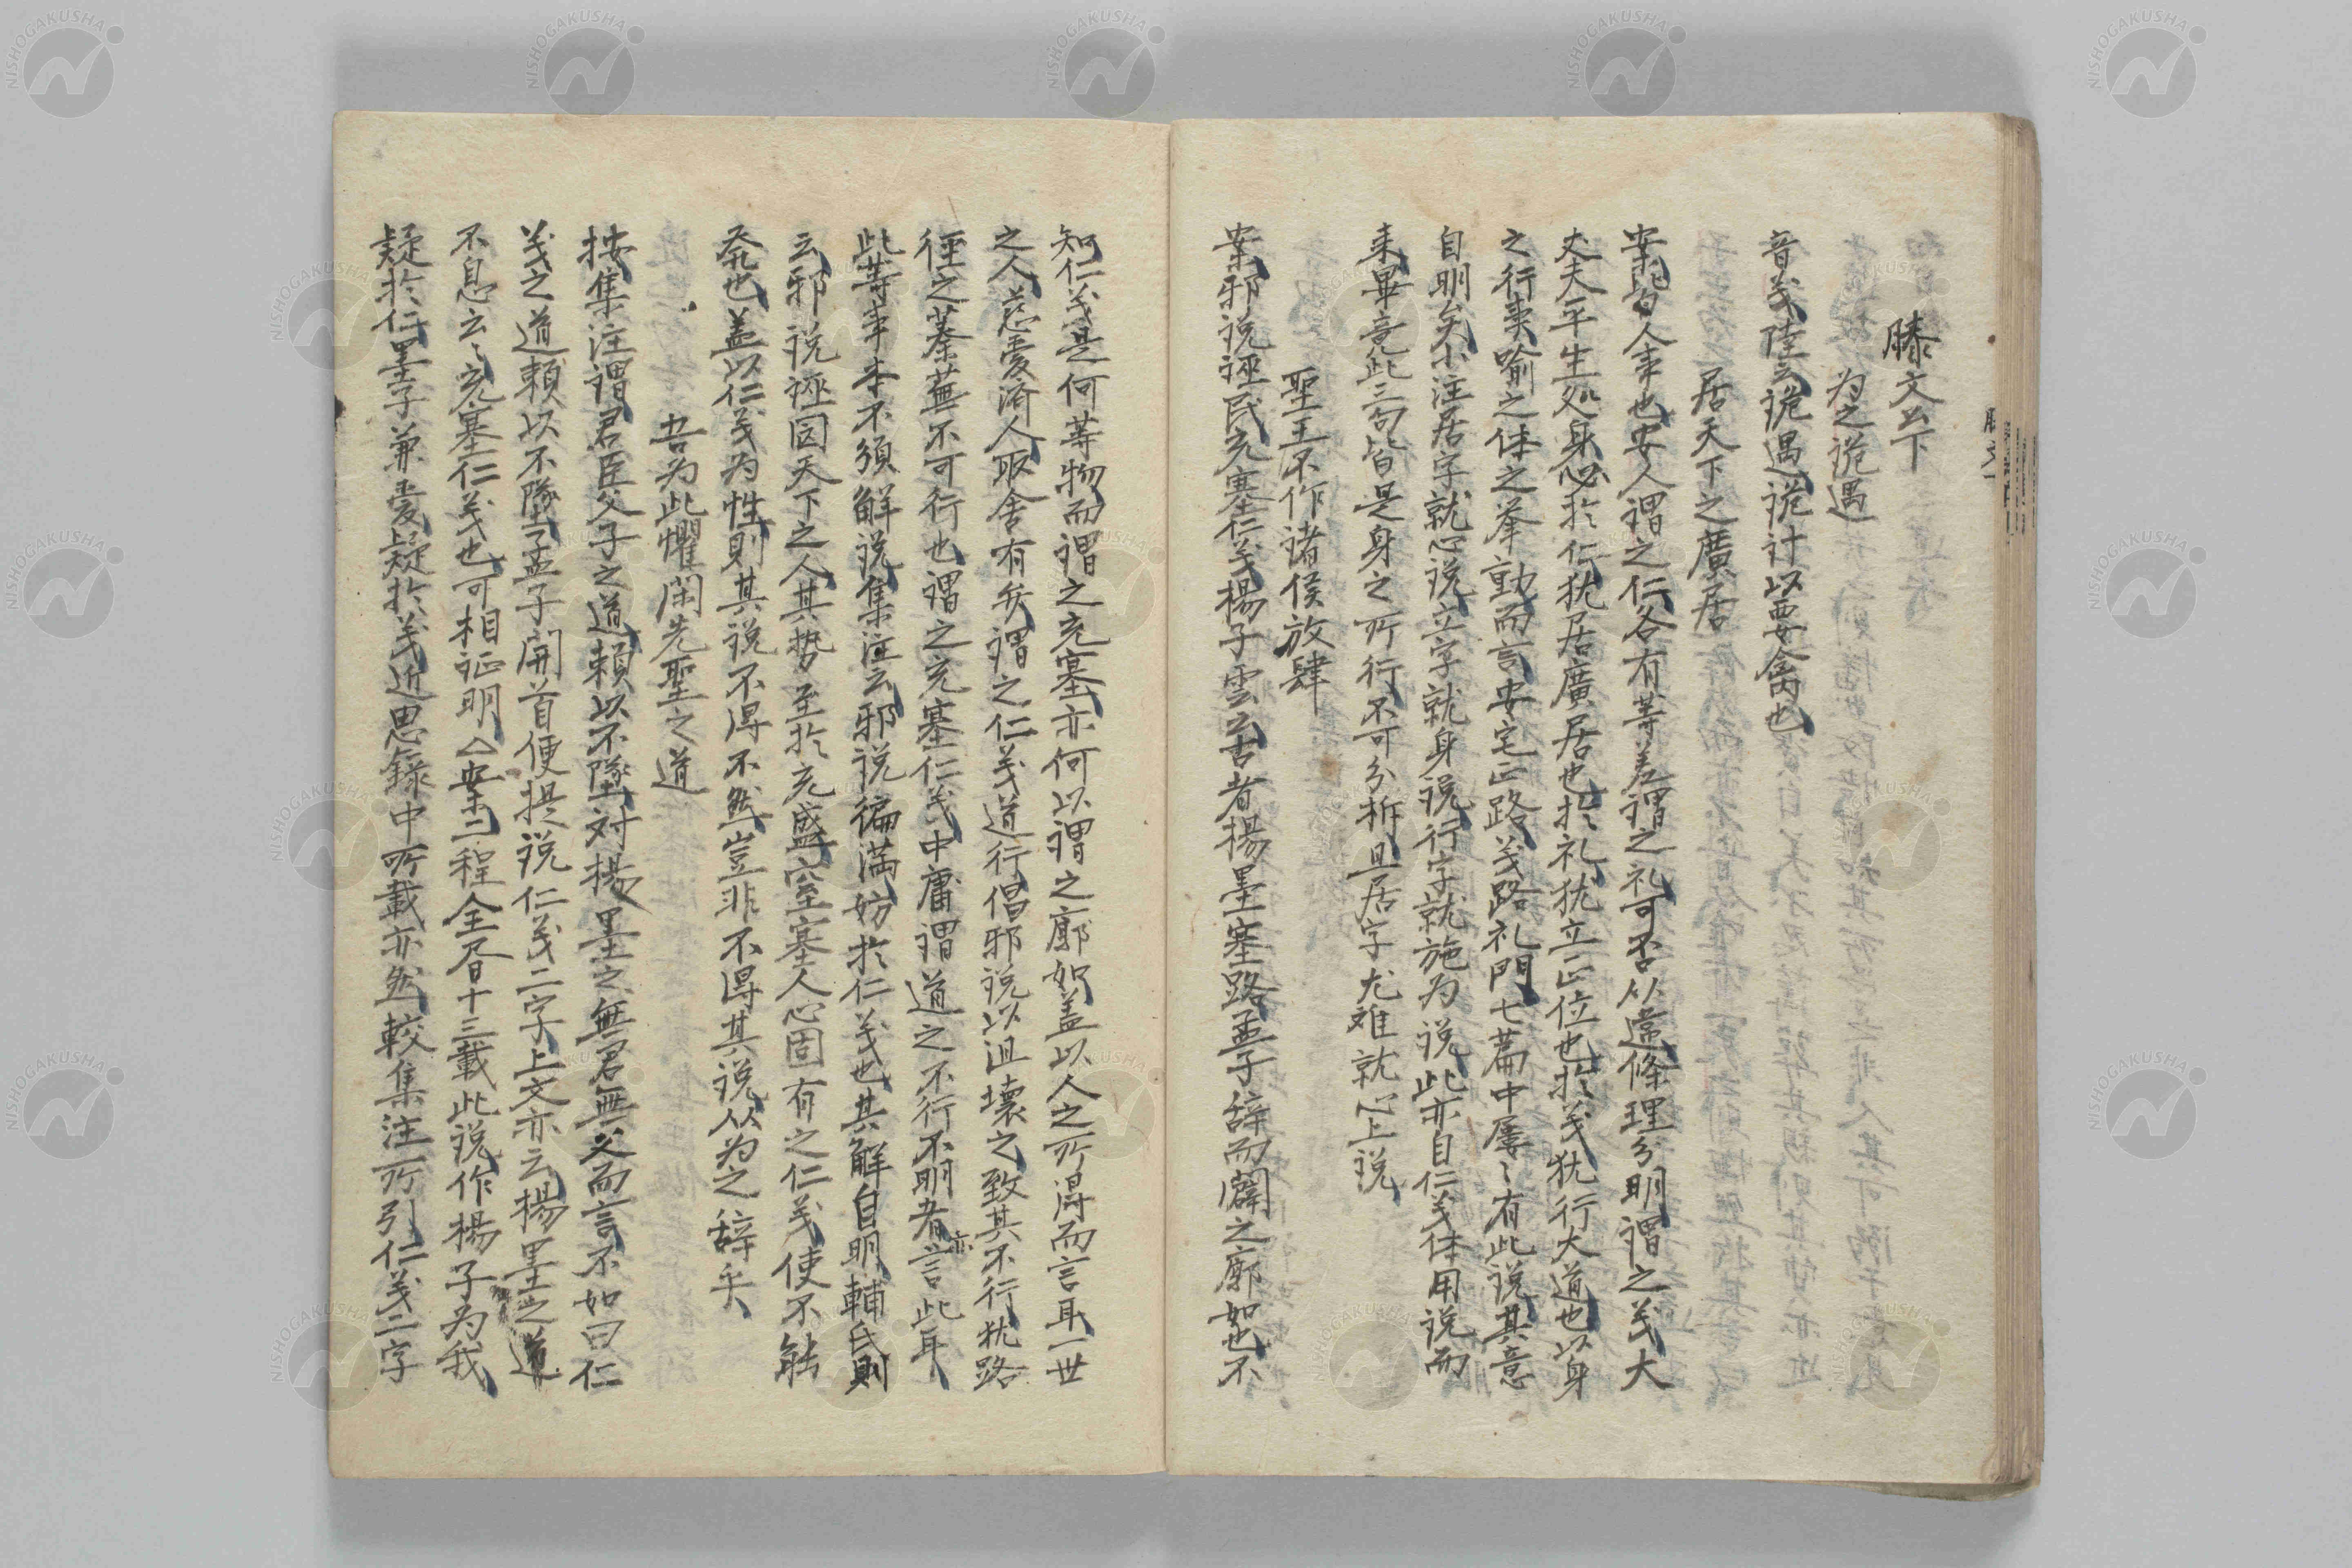 滕文公下
為之詭遇
音義陸云詭遇詭計以要禽也
居天下之廣居
案皆人事也安人謂之仁各有等差謂之礼可否从違條理分明謂之義大
丈夫平生処身心於仁犹居廣居也於礼犹立正位也於義犹行大道也以身
之行事喻之体之挙動而言安宅正路義路礼門七篇中屡〻有此説其意
自明矣小注居字就心説立字就身説行字就施为説此亦自仁義体用説而
来畢竟此三句皆是身之所行不可分拆且居字尤难就心上説
聖王不作諸侯放肆
案邪説誣民充塞仁義楊子雲云古者楊墨塞路孟子辞而闢之廓如也不
知仁義是何等物而謂之充塞亦何以謂之廓如盖以人之所得而言耳一世
之人慈愛济人取舍有义謂之仁義道行倡邪説以沮壊之致其不行犹路
徑之蓁蕪不可行也謂之充塞仁義中庸謂道之不行不明者亦言此耳
此等事本不須解説集注云邪説徧満妨於仁義也其解自明輔氏則
云邪説誣罔天下之人其势至於充盛窒塞人心固有之仁義使不能
発也盖以仁義为性則其説不得不然豈非不得其説从为之辞乎
吾为此懼閑先聖之道
按集注謂君臣父子之道頼以不墜対楊墨之無君無父而言不如曰仁
義之道頼以不墜孟子開首便提説仁義二字上文亦云楊墨之道
不息云〻充塞仁義也可相证明△案二程全昼十三載此説作楊子为我
疑於仁墨子兼愛疑於義近思録中所載亦然較集注所引仁義二字